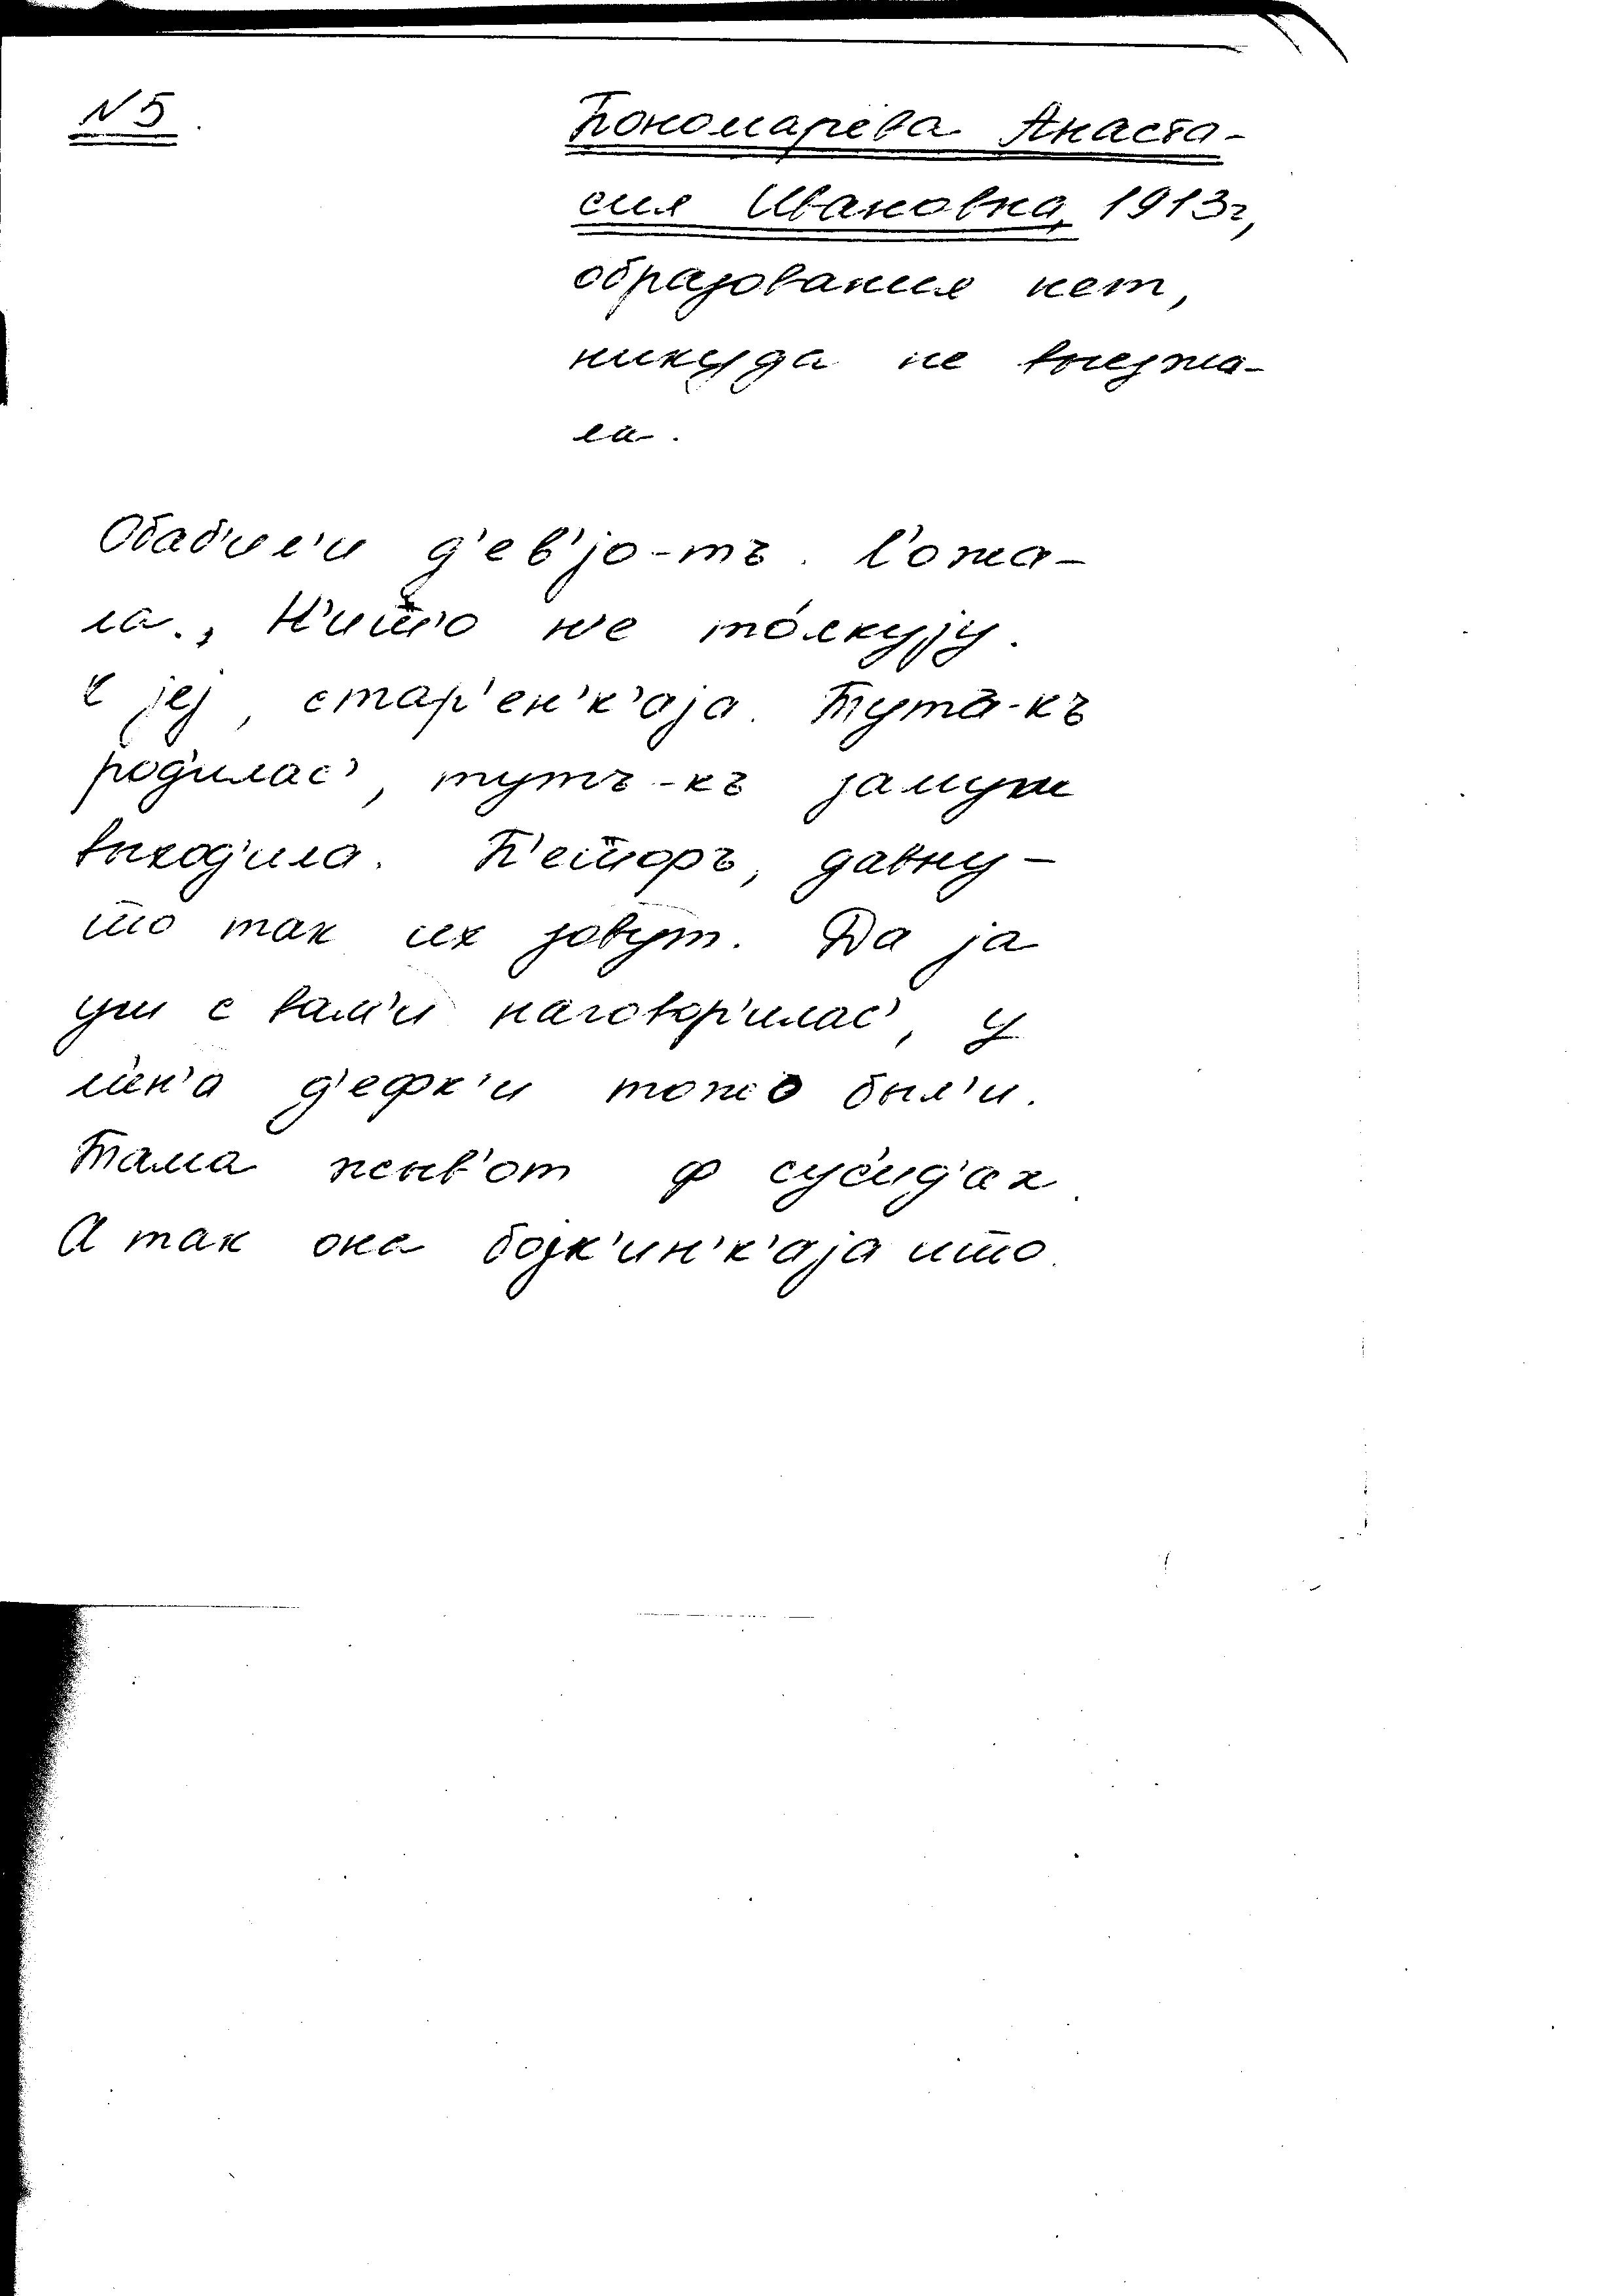 N 5.
Пономарёва Анаста-
сия Ивановна, 1913г,
образования нет,
никуда не выезжа-
ла.
Обаб'ил'и д'ев'јо-тъ. л'ожа-
ла., Н'ишто не то́лкују.
јеј, стар'ен'к'аја. Тута-къ
род'илас', тутъ-къ замуж
выход'ила. П'ешоръ, давну-
што так их зовут. Да ја
уш с вам'и наговор'илас', у
м'ен'а д'ефк'и тожо был'и.
Тама жыв'от ф сус'ид'ах.
А так она бојк'ин'к'аја што.